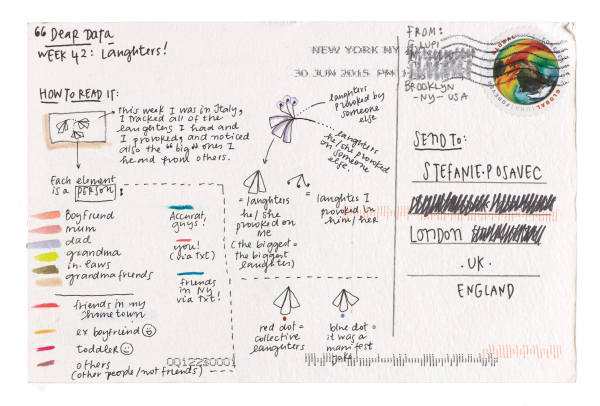 “ Dear Data
WEEK 42: Laughters!
HOW TO READ IT:
This week I was in Italy,
I tracked all of the
laughters I had and
I provoked, and noticed
also the "big" ones I
heard from others.
Each element
is a person:
Boyfriend
mum
dad
grandma
in-laws
grandma friends
friends in my
hometown
ex boyfriend
toddler
others
(other people/not friends)
Accurat,
guys!
you!
(via txt)
friends
in NY
via txt!
laughters
provoked by
someone
else
laughters
he/she provoked
on someone
else.
= laughters
he/she
provoked on
me
(the biggest=
the biggest
laughter)
= laughters I
provoked in
him/her
red dot=
collective
laughters
blue dot=
it was a
manifest
joke
NEW YORK NY
30 JUN 2015 PM
0012230001
FROM:
G. LUPI
BROOKLYN
-NY- USA
GLOBAL
FOREVER
USA
SEND TO:
STEFANIE·POSAVEC
LONDON
·UK·
ENGLAND